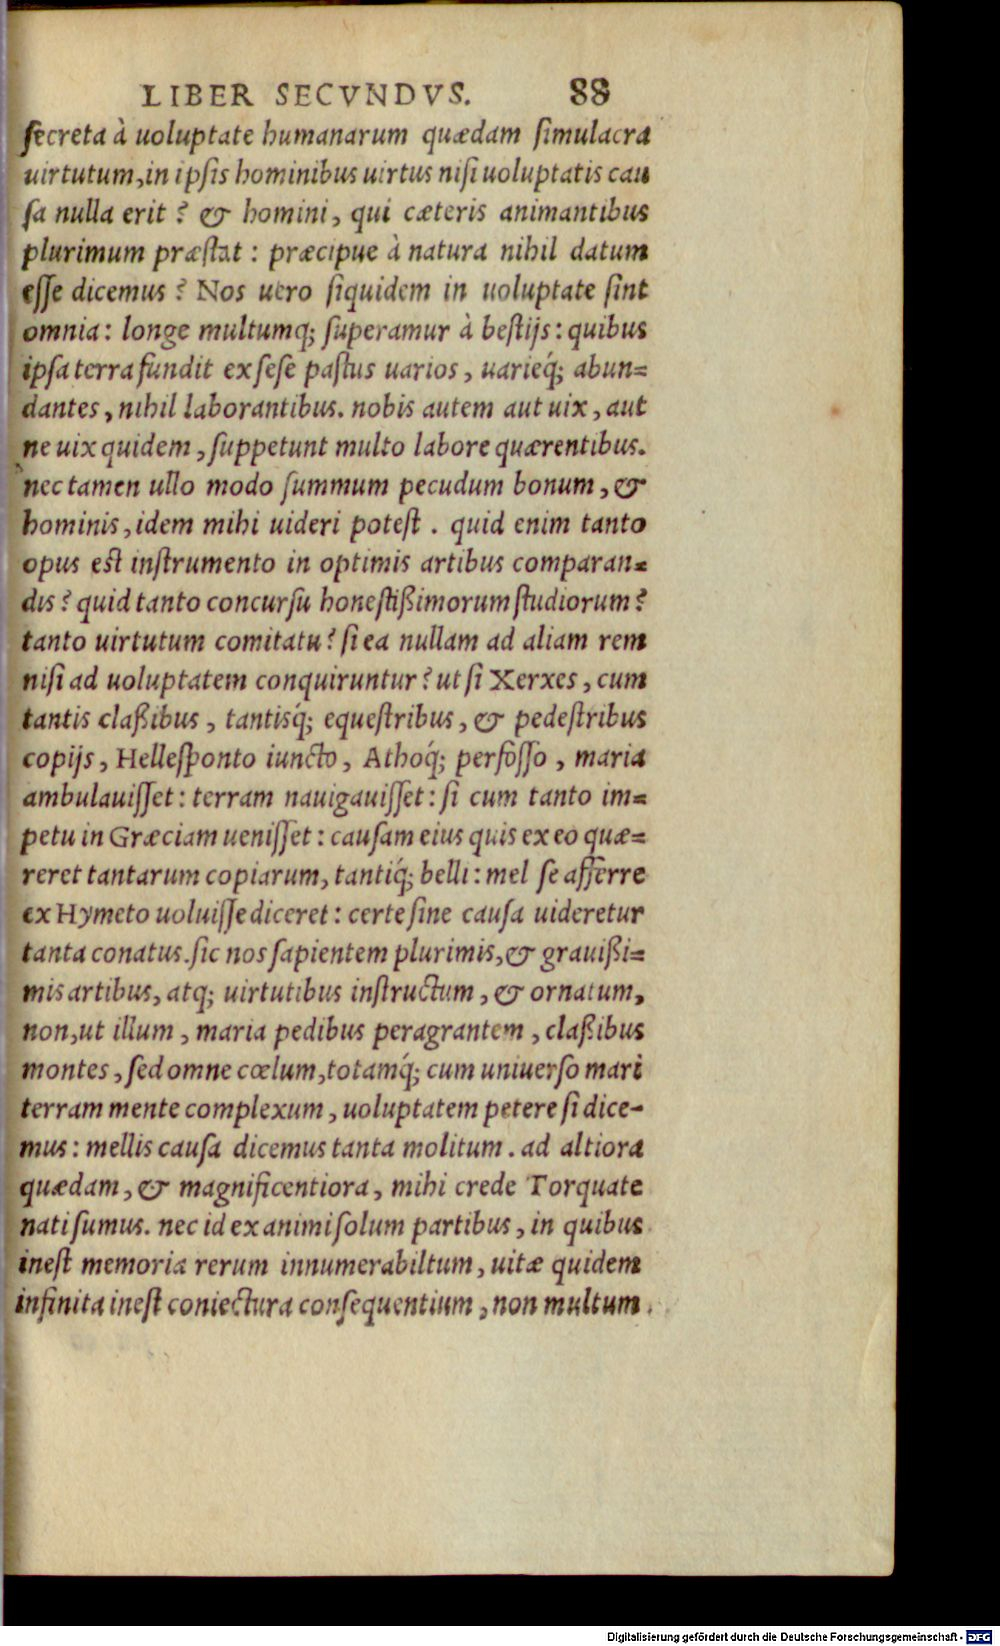 LIBER SECVNDVS. 88
secreta à uoluptate humanarum quædam simulacra
uirtutum, in ipsis hominibus uirtus nisi uoluptatis cau
sa nulla erit? & homini, qui cæteris animantibus
plurimum præstat: præcipue à natura nihil datum
esse dicemus? Nos uero siquidem in uoluptate sint
omnia: longe multumq; superamur à bestijs: quibus
ipsa terra fundit ex sese pastus uarios, uarieq́; abun=
dantes, nihil laborantibus. nobis autem aut uix, aut
ne uix quidem, suppetunt multo labore quærentibus.
nec tamen ullo modo summum pecudum bonum, &
hominis, idem mihi uideri potest. quid enim tanto
opus est instrumento in optimis artibus comparan=
dis? quid tanto concursu honestißimorum studiorum?
tanto uirtutum comitatu? si ea nullam ad aliam rem
nisi ad uoluptatem conquiruntur? ut si Xerxes, cum
tantis claßibus, tantisq́; equestribus, & pedestribus
copijs, Hellesponto iuncto, Athoq́; perfosso, maria
ambulauisset: terram nauigauisset: si cum tanto im=
petu in Græciam uenisset: causam eius quis ex eo quæ=
reret tantarum copiarum, tantiq́; belli: mel se afferre
ex Hymeto uoluisse diceret: certe sine causa uideretur
tanta conatus. sic nos sapientem plurimis, & grauißi=
mis artibus, atq; uirtutibus instructum, & ornatum,
non, ut illum, maria pedibus peragrantem, claßibus
montes, sed omne cœlum, totamq́; cum uniuerso mari
terram mente complexum, uoluptatem petere si dice-
mus: mellis causa dicemus tanta molitum. ad altiora
quædam, & magnificentiora, mihi crede Torquate
nati sumus. nec id ex animi solum partibus, in quibus
inest memoria rerum innumerabiltum, uitæ quidem
infinita inest coniectura consequentium, non multum
Digitalisierung gefördert durch die Deutsche Forschungsgemeinschaft - DFG